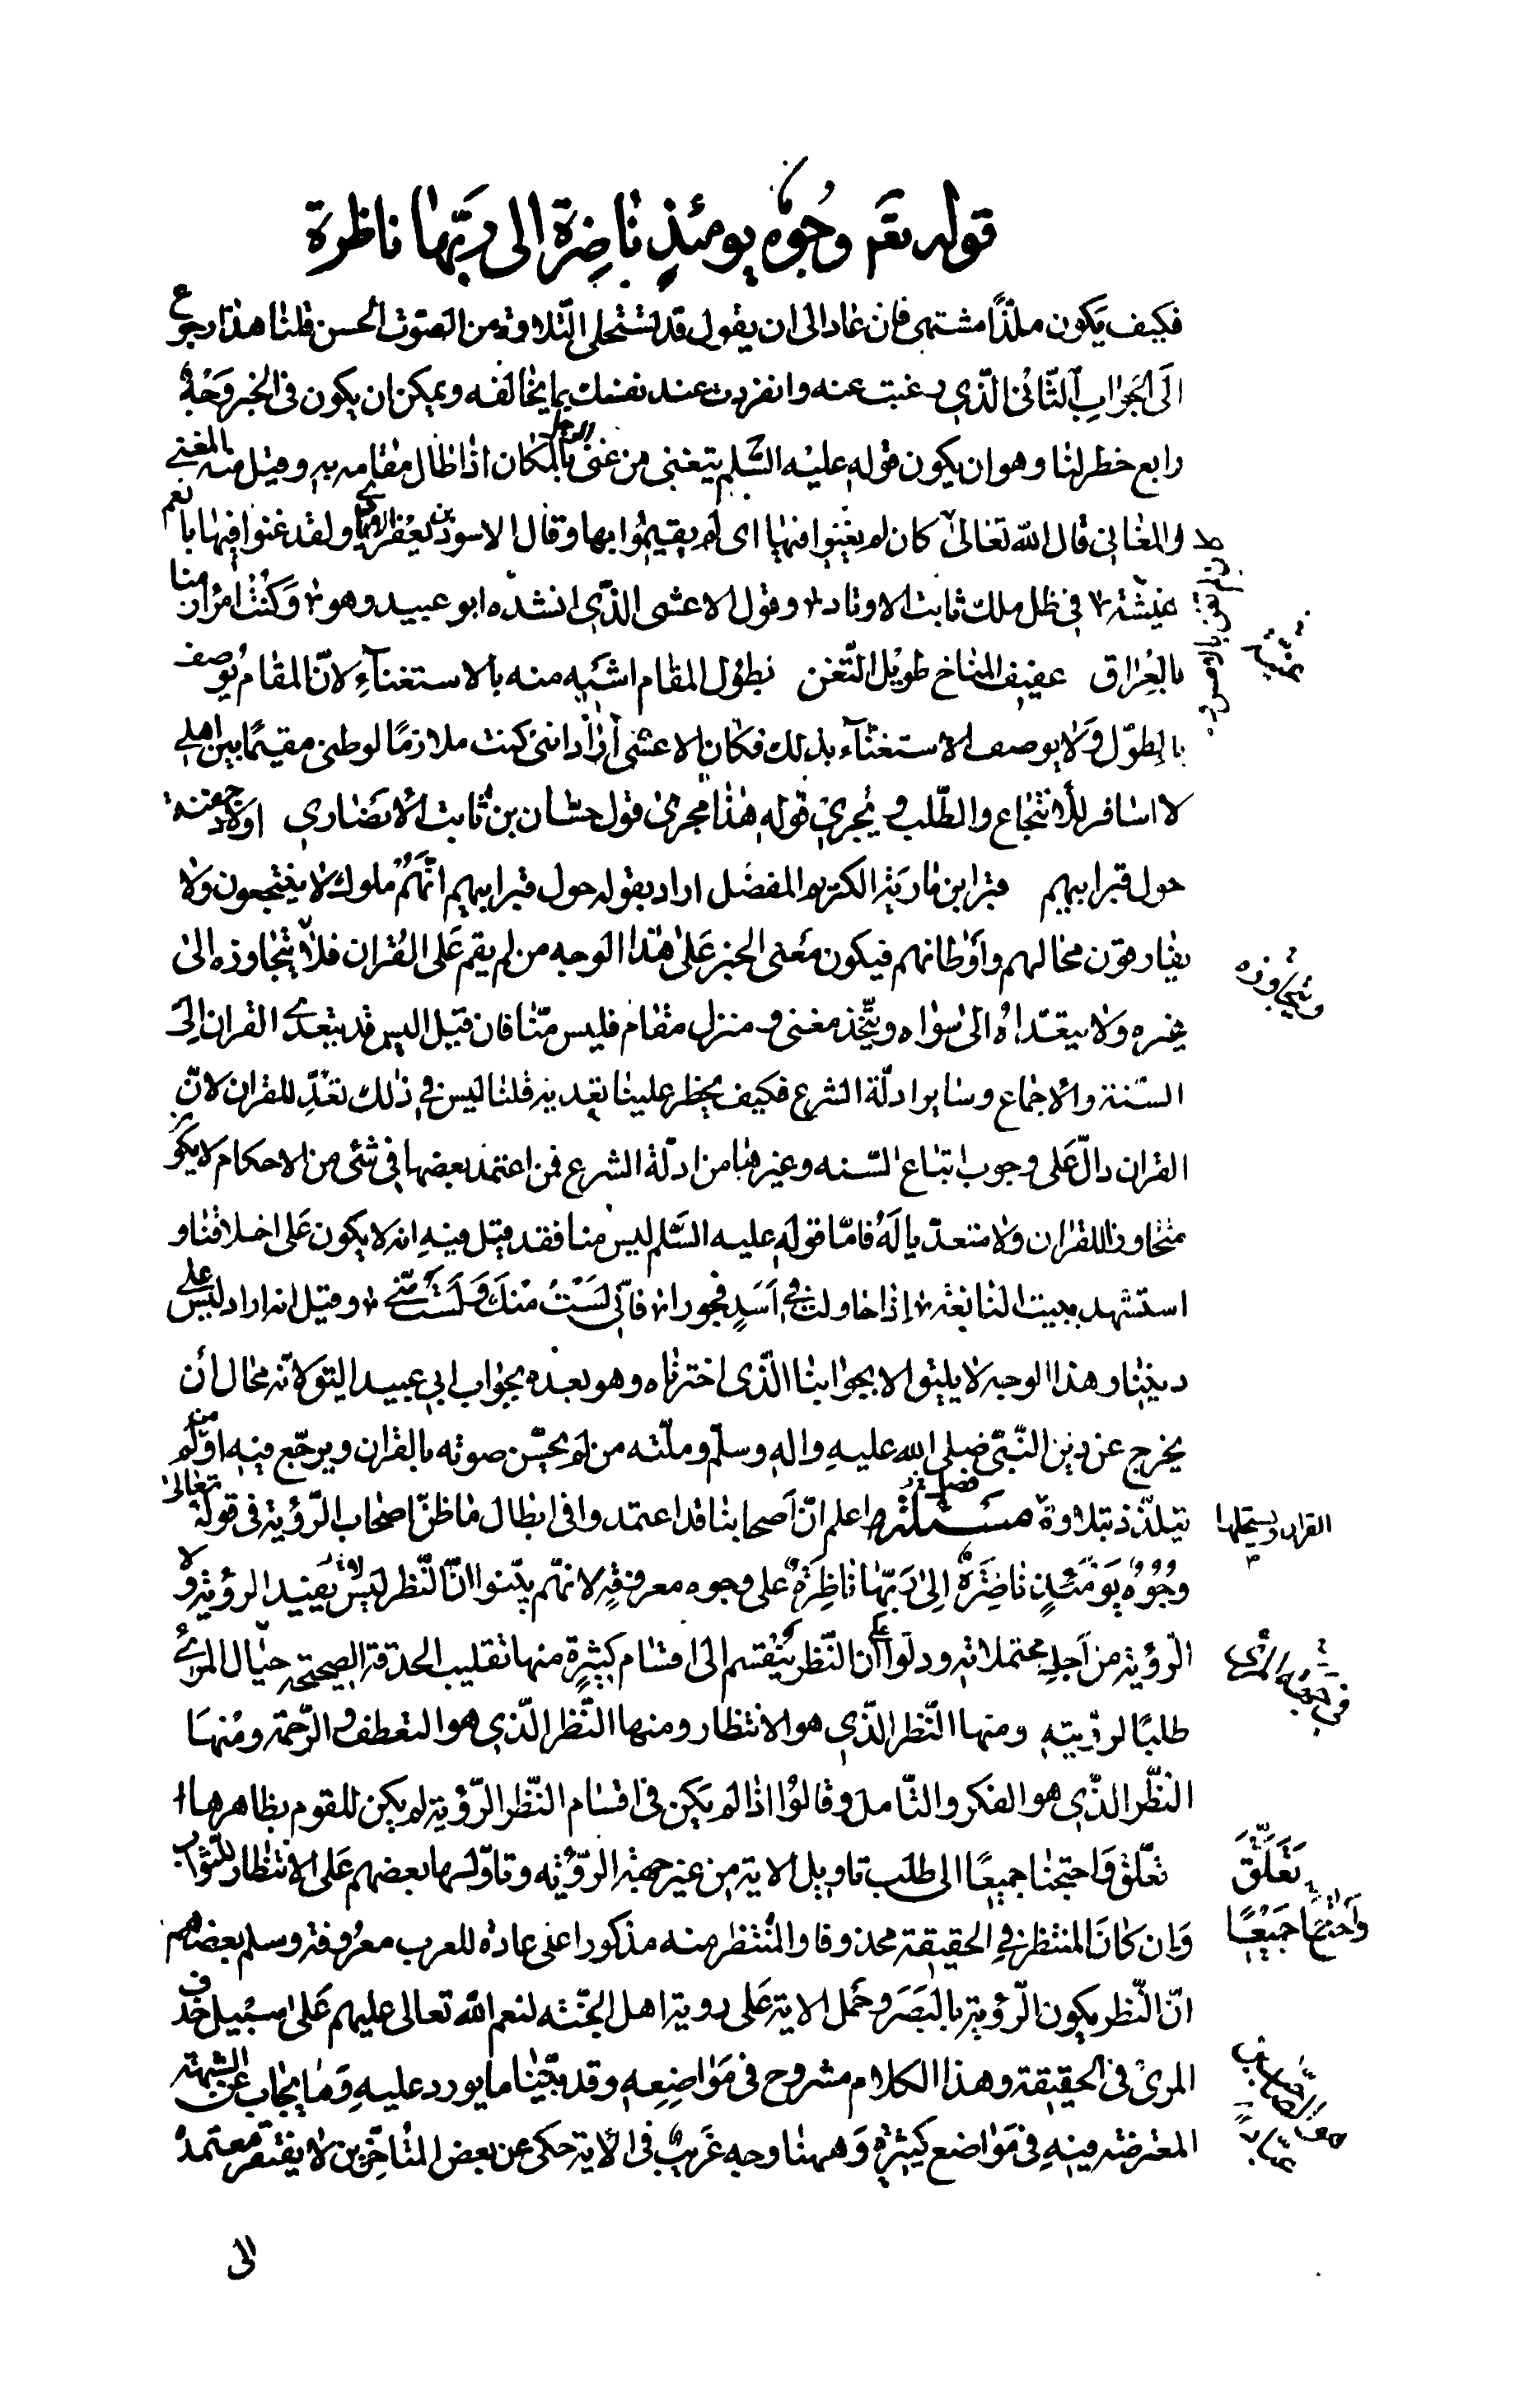 قوله تعم وُجُوهٌ يومئذٍ نٰاضِرة الى ربّهٰا ناظرة
فكيف يكون ملذًّا مشتهى فان عٰاد الى ان يقول قد تستحلى التّلاوة من الصّوت الحسن قلنٰا هذٰا رجوع
الَى الجَوٰابِ الثّانىٰ الّذي رغبت عنه وانفردت عند نفسك بما يخٰالفه ويمكن ان يكون فى الخبر وَجْهٌ
رابع خطر لنٰا وهو ان يكون قوله عليه السَّلم يتغنى من غنى الرجل بالمكٰان اذٰا طٰال مقٰامه به وقيل منه المغنى
والمغٰانى قٰال الله تعٰالىٰ كان لم يغنوا فيهٰا اى لم يقيمُوا بها وقٰال الاسود بن يعُفر الايادى ولقد غنوا فيهٰا بانعم
عيشة فى ظل ملك ثابت الاوتاد وقول الاعشى الذّى انشده ابو عبيد وهو وَكُنْتُ امرًا زمنا
بالعِرٰاق عفيف المنٰاخ طويل التّغن بطوُل المقٰام اشبَه منه بالاستغنآءِ لانّ المقٰام يُوصف
بالطوّل وَلا يوصف الاستغنآء بذلك فكٰان الاعشى أرٰاد اننى كنت ملازمًا لوطنى مقيمًا بين اهلى
لا اسٰافر للأنتجٰاع والطّلب ويُجرى قوله هٰذٰا مجرىٰ قول حسّان بن ثٰابت الأنصٰارى اولاد جفنة
حول قبر ابيهم قبر ابن مٰارية الكريم المفضل اراد بقوله حول قبر ابيهم انَّهَمُ ملوك لا ينتجعون وَلا
يفٰارقون محٰالهم وأَوطٰانهم فيكون مَعنى الخبر عَلىٰ هٰذا الوجه من لم يقم عَلى القُران فلا يتجٰاوزه الىٰ
غيره ولا يتعدّاهُ الىٰ سوٰاه ويتّخذ مغنى و منزل مقٰام فليس منّٰا فان قيل اليس قد يتعدى القران الَى
السّنة والأجمٰاع وسٰاير ادلّة الشرع فكيف يحظر علينٰا تعديه قلنٰا ليس فى ذٰلك تعَدٍّ للقران لانّ
القران دالّ عَلى وجوب اتبٰاع السّنه وغيرهٰا من ادلّة الشرع فمن اعتمد بعضها فى شئ من الاحكام لا يكون
متجٰاوزا للقرٰان ولا متعدّيا لَهُ فامّا قوله عليه السَّلم ليس منا فقد قيل فيهِ انه لا يكون عَلى اخلاقنٰا و
استشهد ببيت النٰابغة إذٰا حٰاولت فى أسَدٍ فجورا فإنّى لَسْتُ مِنْكَ وَلَسْتَ مِنّى وقيل انه اراد ليس على
ديننٰا وهذا الوجه لا يليق الا بجوٰابنٰا الذّى اخترنٰاه وهو بعده بجوٰاب ابى عبيد اليق لانّه محٰال أن
يخرج عن دين النّبىّ صلى الله عليهِ واله وسلّم وملّته من لم يحسّن صوته بالقرٰان ويرجّع فيه او من لم
يتلذّذ بتلاوة مسئلة اعلم انّ أصحابنٰا قد اعتمدوا فى ابطٰال مٰا ظنّ اصحٰاب الرّؤية فى قوله تعٰالىٰ
وجُوُهٌ يَوَمَئذٍ نٰاضَرةٌ اِلىٰ ربّهٰا نٰاظِرَةٌ على وجوه معروفةٍ لانهّم بيّنوا انّ النّظر ليس يفيد الرؤية ولا
الرّؤية من أجل محتملاته ودلّوا على أن النّظر ينقسم الى اقسٰام كثيرةٍ منهٰا تقليب الحدقة الصحيحة حيٰال المرئى
طلبًا لرؤيته ومنهٰا النّظر الذّي هو الانتظار ومنها النّظر الذّي هو التعطف والرّحمة ومُنهَا
النّظر الذّي هو الفكر والتّامل وقٰالوُا اذٰا لم يكن فى اقسٰام النّظر الرّؤية لم يكن للقوم بظٰاهرهٰا
تعلّق وَاحتجنٰا جميعًا الى طلب تاويل الاية من غير جهة الرّؤيه وتاوّلهٰا بعضهم عَلى الانتظار للثوٰاب
وَان كٰانَ المنتظر فى الحقيقة محذوفا والمُنتظر منه مذكورا على عادة للعرب معرُوفة وسلم بعضهم
انّ النّظر يكون الرّؤية بالبَصَر وحَمل الاية عَلى روية اهل الجنّة لنعم الله تعالى عليهم عَلىٰ سبيل حذف
المرئ فى الحقيقة وهذا الكلام مشروح فى مَوٰاضِعِه وقد بيّنٰا ما يورد عليهِ وَمٰا يجٰاب عن الشبهة
المعترضة فيهِ فى مَوٰاضع كثيرَةٍ وَههنٰا وجه غَريبٌ فى الأية حكى عن بعض المتٰأخّرين لا يفتقر معتمده
الى
ويتجاوزه
القران ويستحليها
تَعْلّق
واحتجنا جَميْعًا